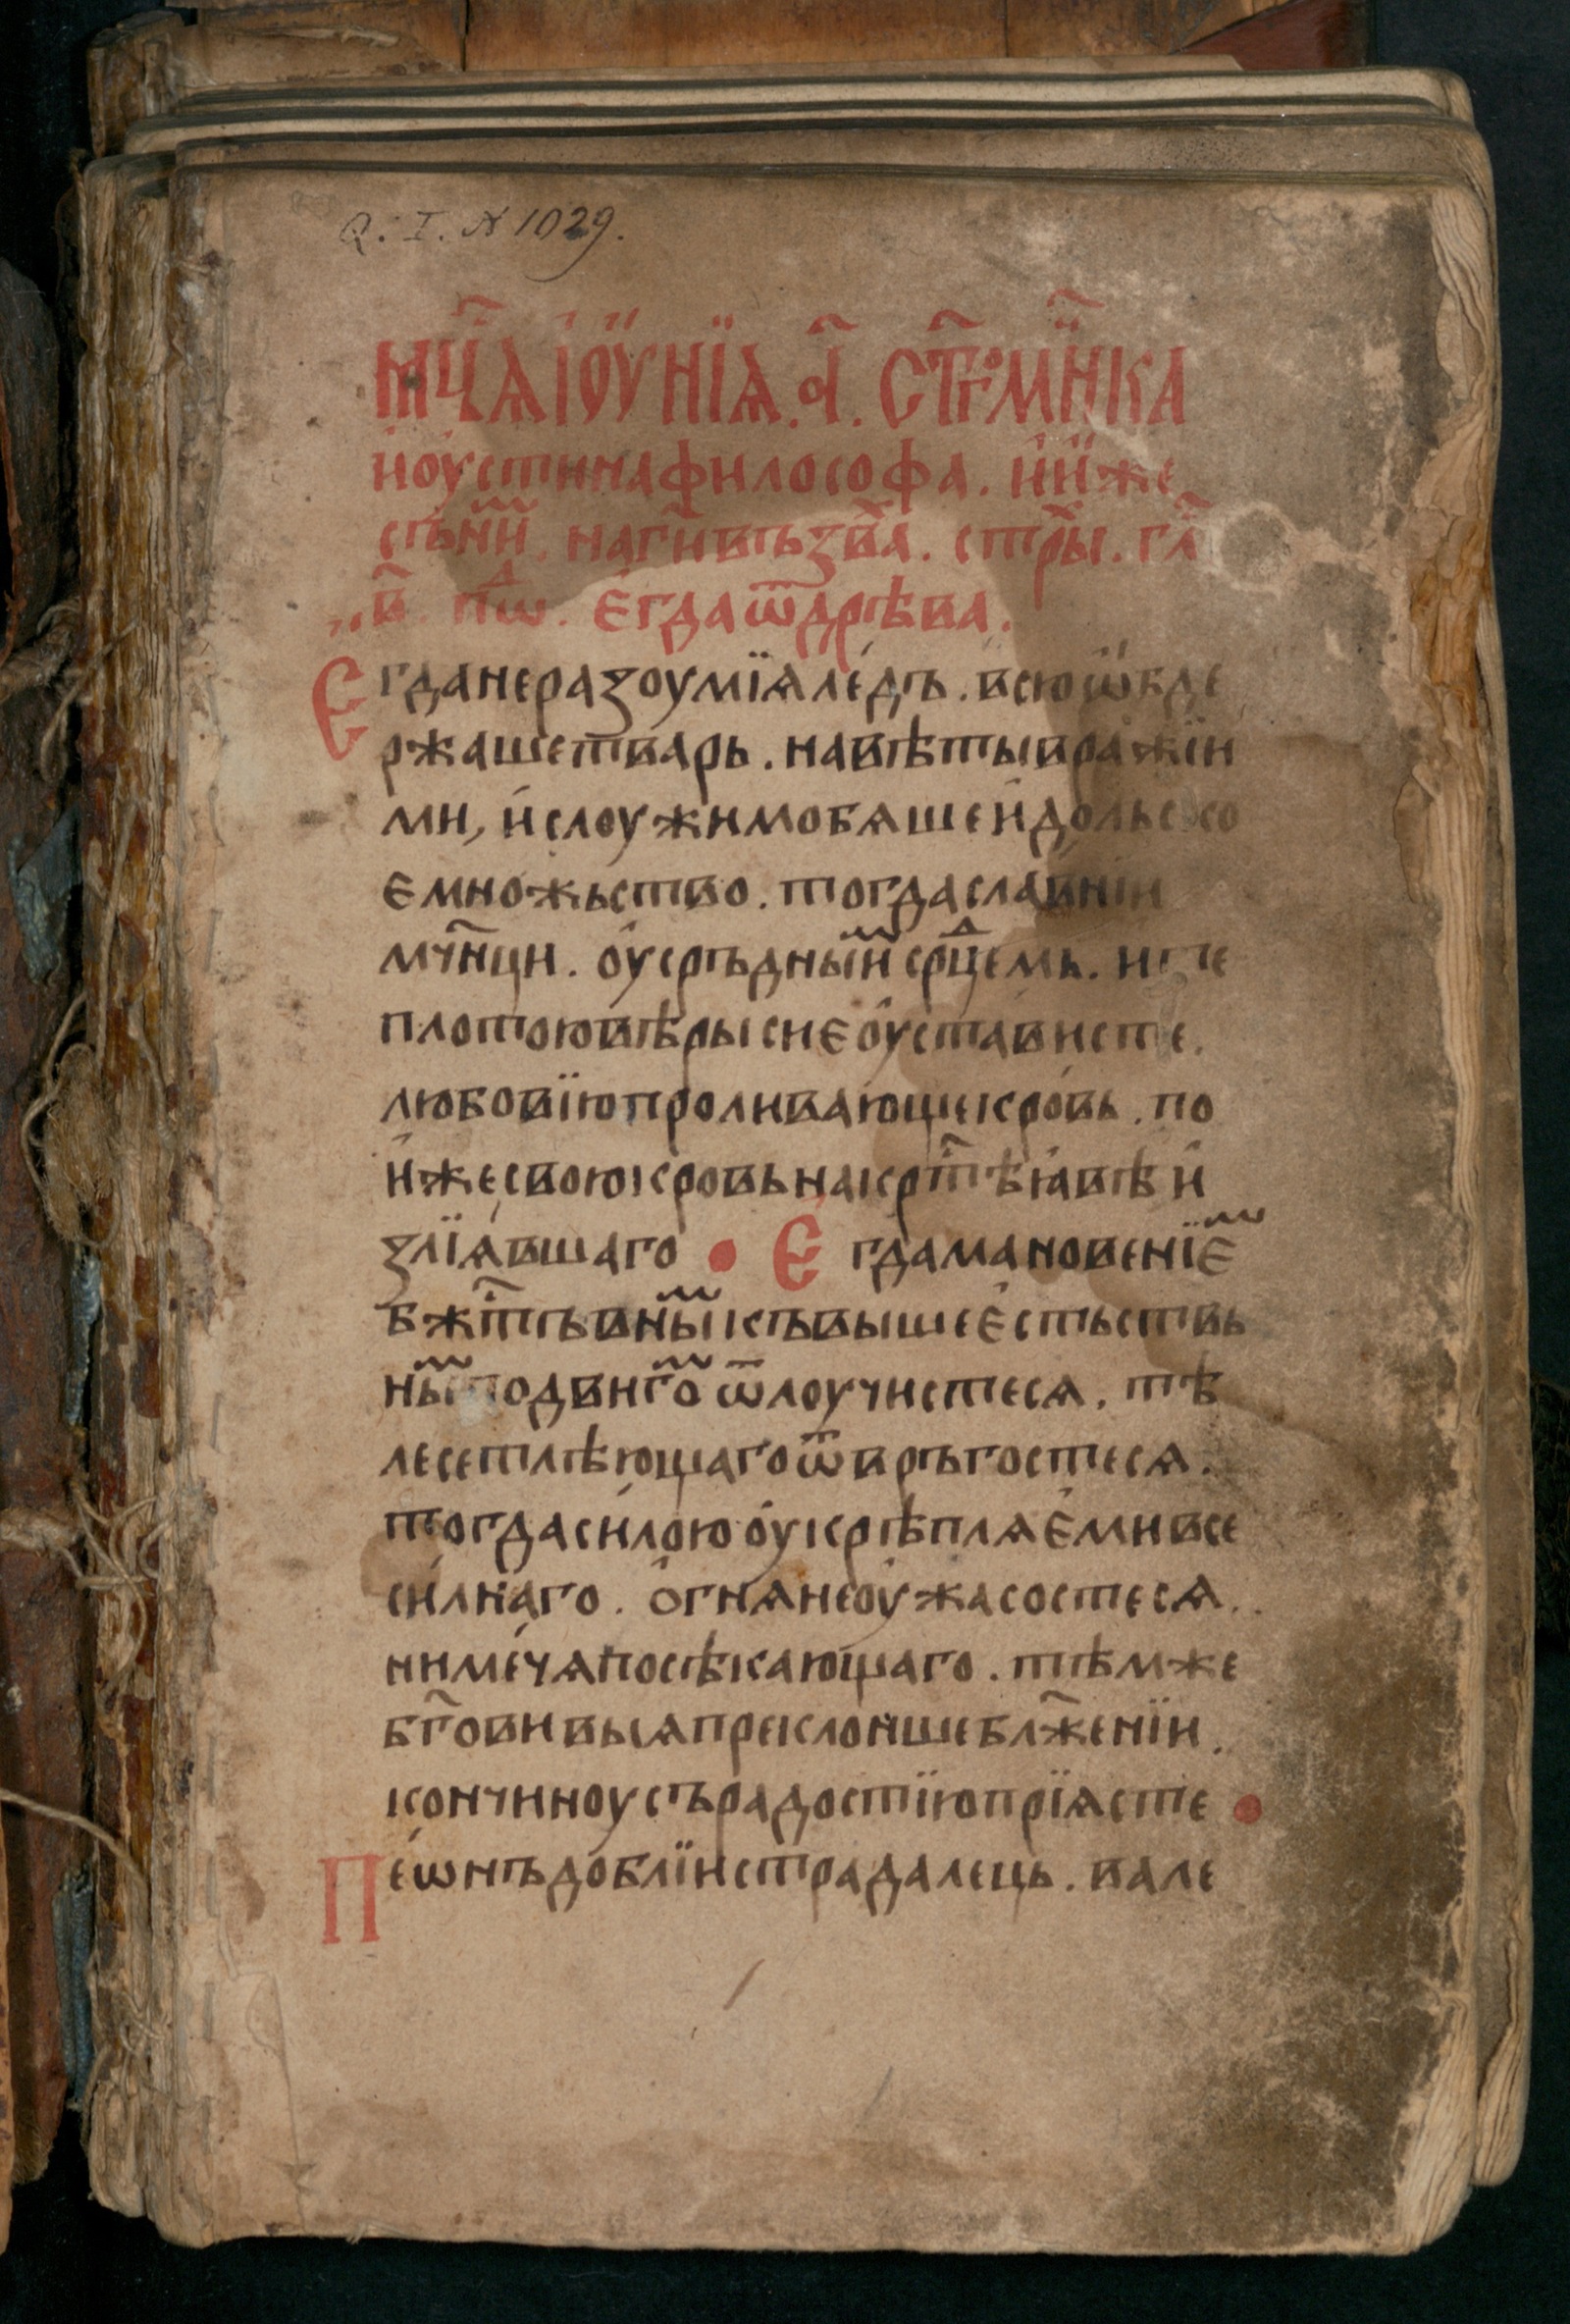 Q. I. N 1029.
мⷭ҇ца їоу́нїѧ. а҃. ст҃го мч҃нка
ио́устина философа. и́и́же
съни҃. на гⷭ҇и възва҃. стⷯры. гл҃
в҃. пⷣо. Є҆гда ѿ дрѣва.
Єгда неразоумїѧ ле́дъ. всю ѡ҆бде
ржаше тварь. навѣты вражїи
ми, и҆ слоужимо бѧше и҆дольс
є множьство. тогда славнїи
мч҃нци. оу҆сръдныи҆ срⷣцемь. и те
плотою вѣры сие оу҆стависте.
любовїю проливающе кро́вь. по
и҆же свою кровь на крⷭ҇тѣ ꙗ҆вѣ и҆
злїѧвшаго • Є҆гда мановенїє
бжⷭ҇твъвны къ вышеє҆стьствь
ны подвиго ѿлоучистесѧ. тѣ
лесе тлѣющаго ѿвръгостесѧ.
тогда си́лою оу҆крѣплѧє҆ми все
си́лнаго. ѻ҆гнѧ не оу҆жасостесѧ.
ни ме́чѧ посѣкающаго. тѣмже
бг҃ови выѧ преклонше блж҃енїи.
кончиноу съ радостїю прїѧсте •
Пеѡ́нъ доблїи страдалець. вале